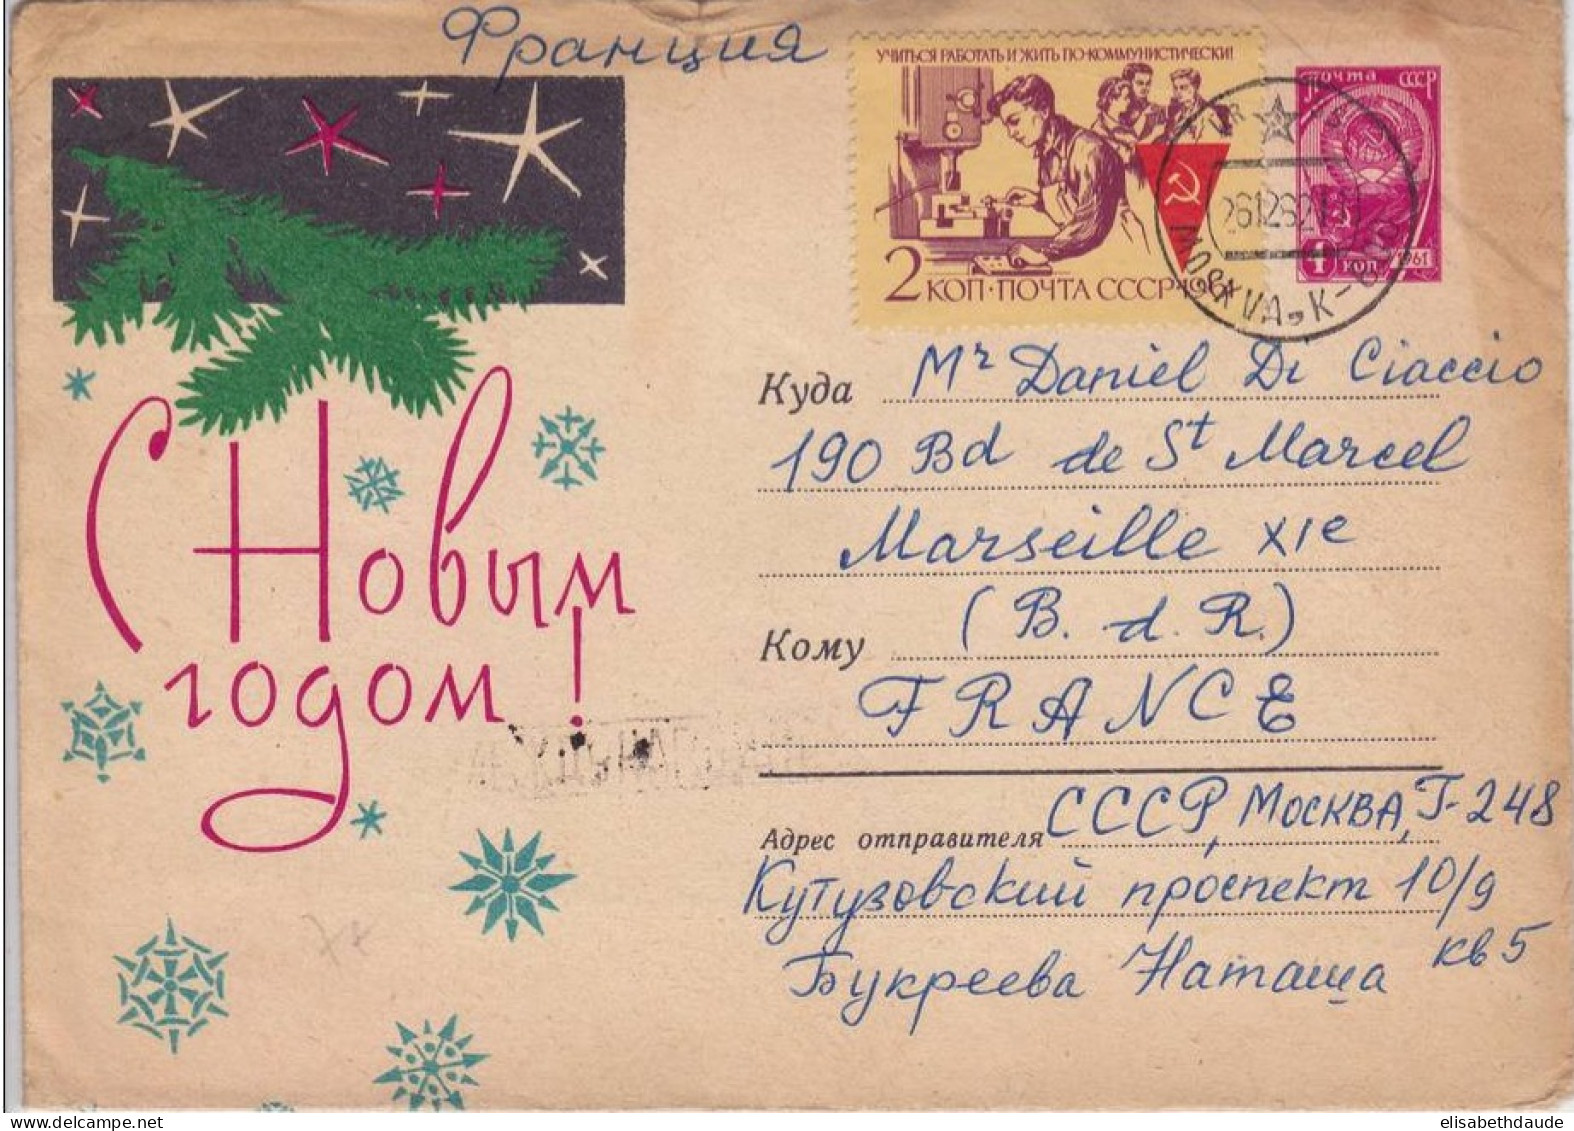 Франция
УЧИТЬСЯ РАБОТАТЬ И ЖИТЬ ПО-КОММУНИСТИЧЕСКИ!
2 КОП·ПОЧТА СССР·1961
почта СССР
4 коп 1961
261262
MOSKVA, K-
С Новым
годом!
Куда Mr Daniel Di Ciaccio
190 Bd de St Marcel
Marseille XIe
Кому (B. d. R.)
FRANCE
Адрес отправителя СССР, Москва, Г-248
Кутузовский проспект 10/9
кв 5
Букреева Наташа
elisabethdaude